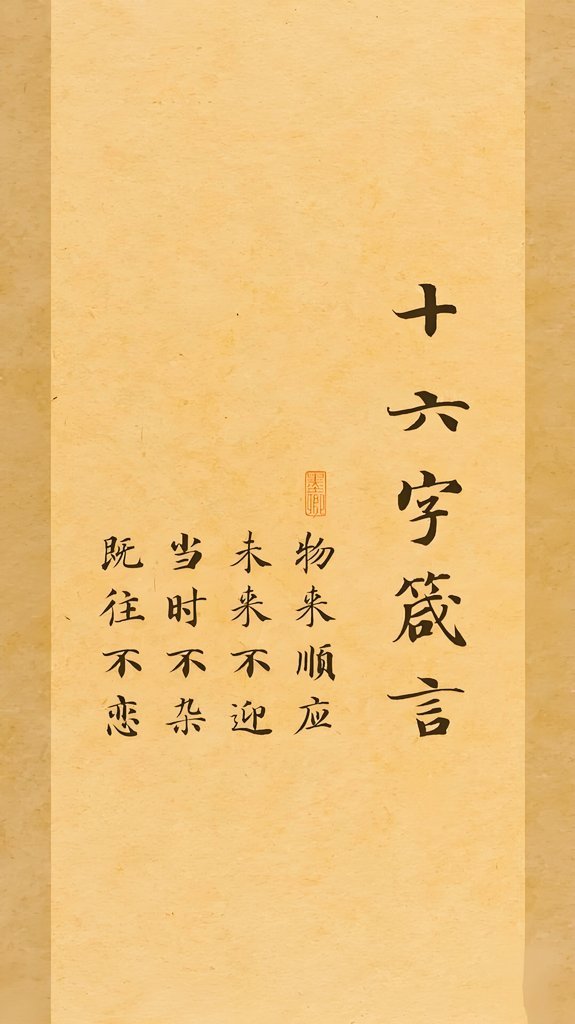 十六字箴言
墨卿
物来顺应
未来不迎
当时不杂
既往不恋